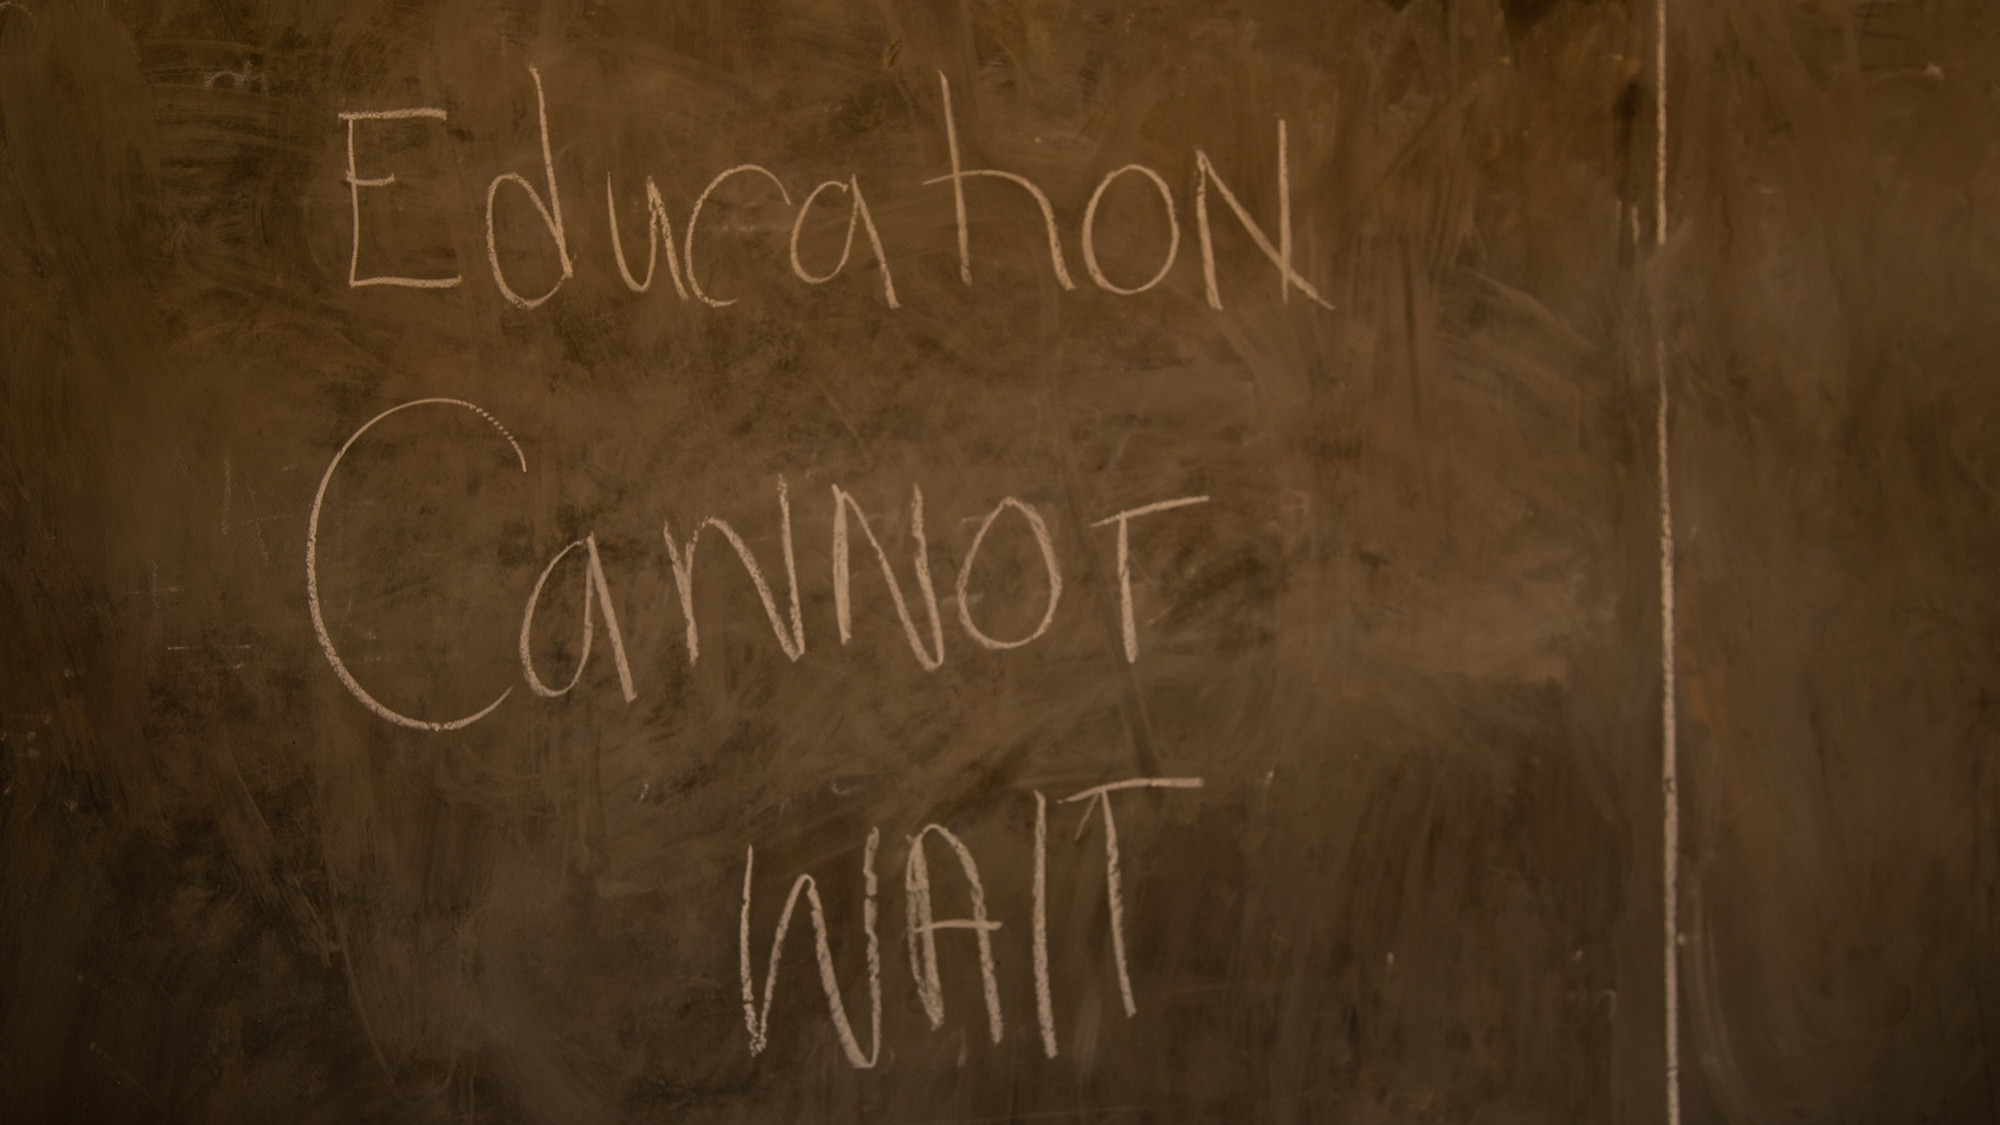 EducatioN
CanNOT
WAIT